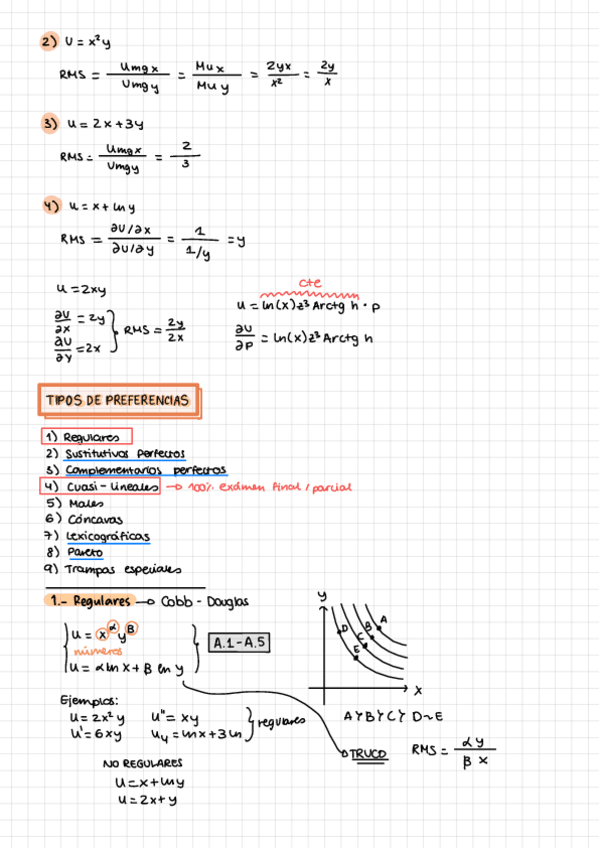 2) U = x²y
RMS = Umg x / Umg y = Mu x / Mu y = 2yx / x² = 2y / x
3) u = 2x + 3y
RMS = Umgx / Umgy = 2 / 3
4) u = x + ln y
RMS = ∂U/∂x / ∂U/∂y = 1 / 1/y = y
u = 2xy
∂U/∂x = 2y
∂U/∂y = 2x
} RMS = 2y / 2x
cte
u = ln(x) z³ Arctg h · p
∂U/∂P = ln(x) z³ Arctg h
TIPOS DE PREFERENCIAS
1) Regulares
2) Sustitutivos perfectos
3) Complementarios perfectos
4) Cuasi-lineales → 100% exámen final / parcial
5) Males
6) Cóncavas
7) Lexicográficas
8) Pareto
9) Trampas especiales
1.- Regulares → Cobb-Douglas
u = x^α y^B
números
u = α ln x + B ln y
A.1-A.5
y
A
B
C
D
E
x
A Y B Y C Y D ~ E
Ejemplos:
u = 2x²y u'' = xy
u' = 6xy u₄ = lnx + 3 ln
} regulares
TRUCO RMS = α y / β x
NO REGULARES
u = x + lny
u = 2x + y